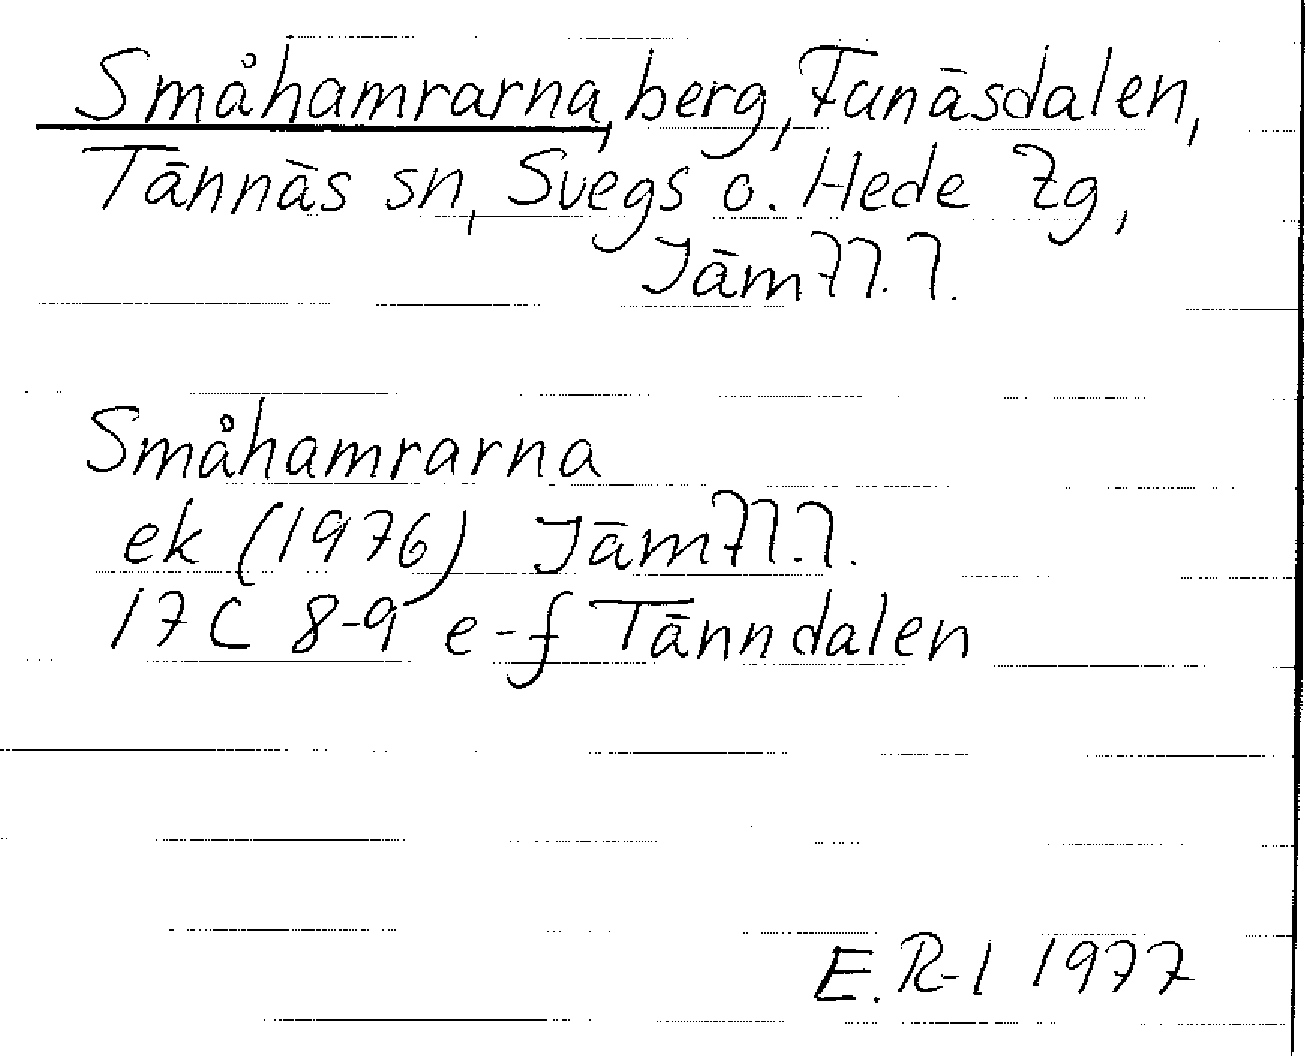 Småhamrarna, berg, Funäsdalen,
Tännäs sn, Svegs o. Hede tg,
Jämtl. l.
Småhamrarna
ek (1976) Jämtl. l.
17C 8-9 e-f Tänndalen
E. R-l 1977